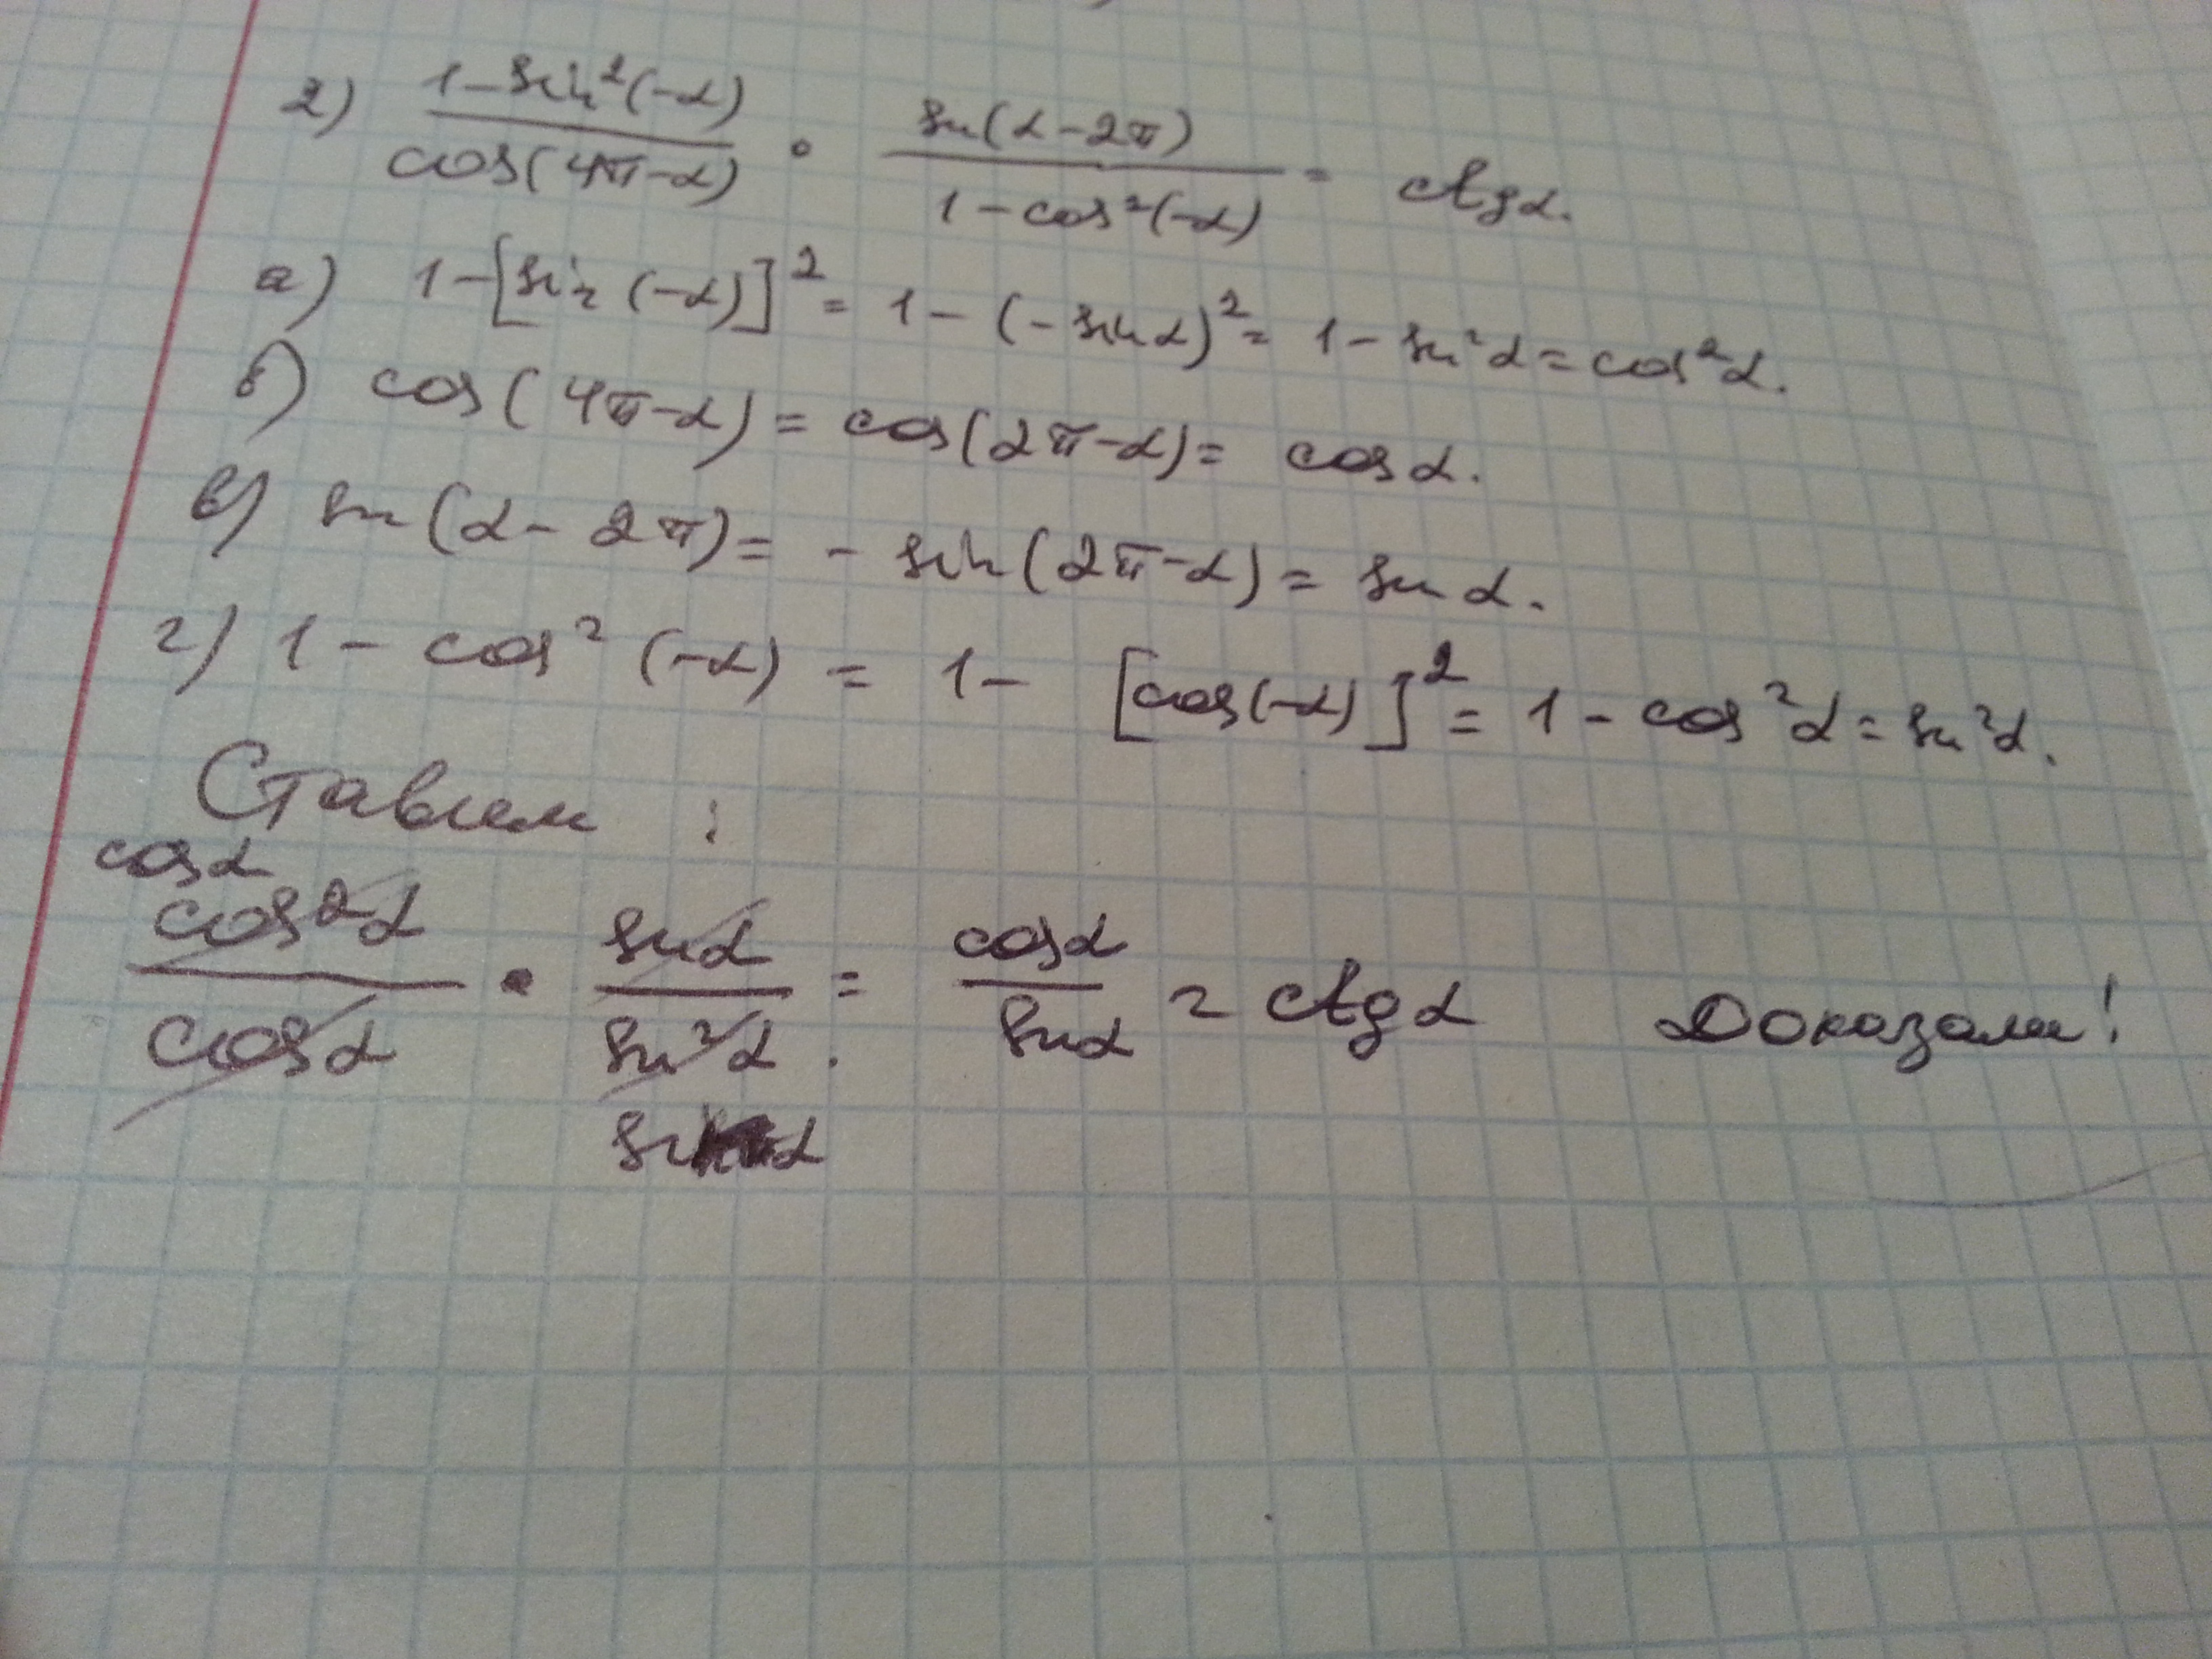 2) (1-sin²(-α))/(cos(4π-α)) · (sin(α-2π))/(1-cos²(-α)) = ctgα.
а) 1-[sin(-α)]² = 1-(-sinα)² = 1-sin²α = cos²α.
б) cos(4π-α) = cos(2π-α) = cosα.
в) sin(α-2π) = -sin(2π-α) = sinα.
г) 1-cos²(-α) = 1-[cos(-α)]² = 1-cos²α = sin²α.
Ставим :
cosα
cos²α/cosα · sinα/sin²α = cosα/sinα = ctgα Доказали!
sinα